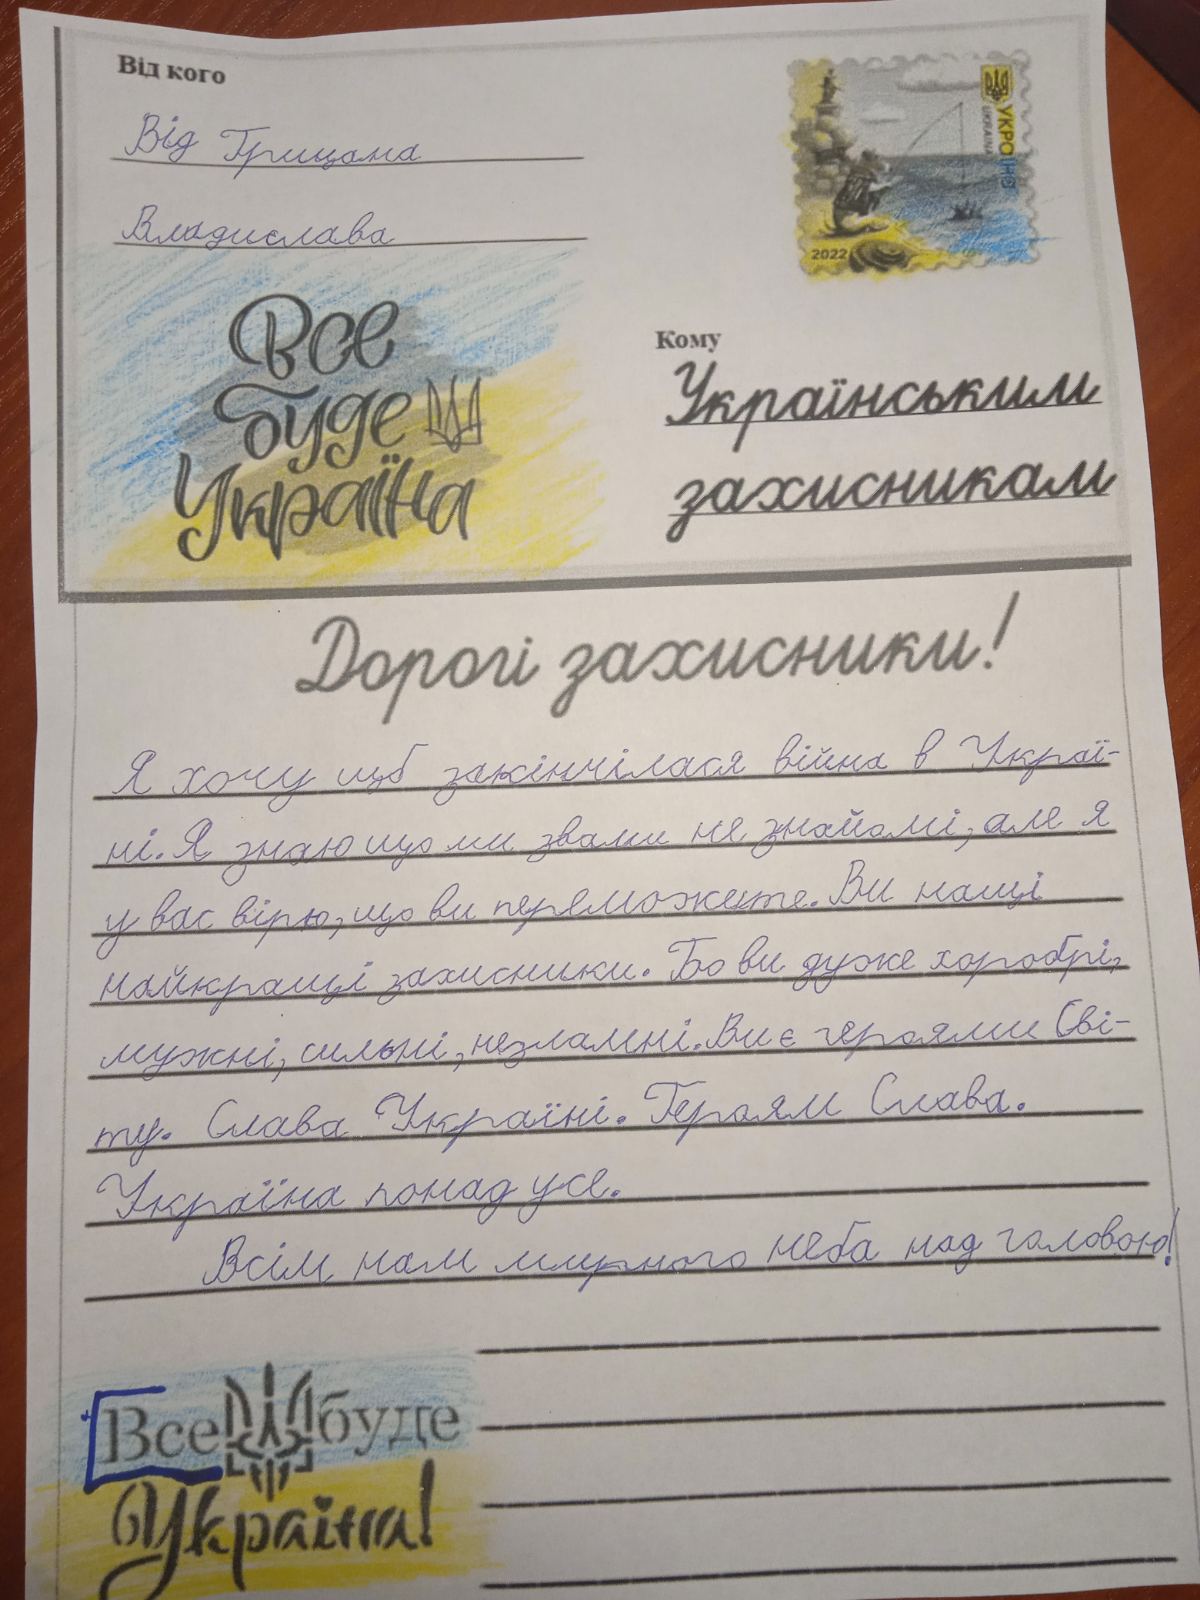 Від кого
Від Грицана
Владислава
УКРАЇНА
UKRAINA
2022
Все
буде
Україна
Кому
Українським
захисникам
Дорогі захисники!
Я хочу щоб закінчілася війна в Украї-
ні. Я знаю що ми звами не знайомі, але я
у вас вірю, що ви переможете. Ви наші
найкращі захисники. Бо ви дуже хоробрі,
мужні, сильні, незламні. Ви є героями Сві-
ту. Слава Україні. Героям Слава.
Україна понад усе.
Всім нам мирного неба над головою!
Все буде
Україна!